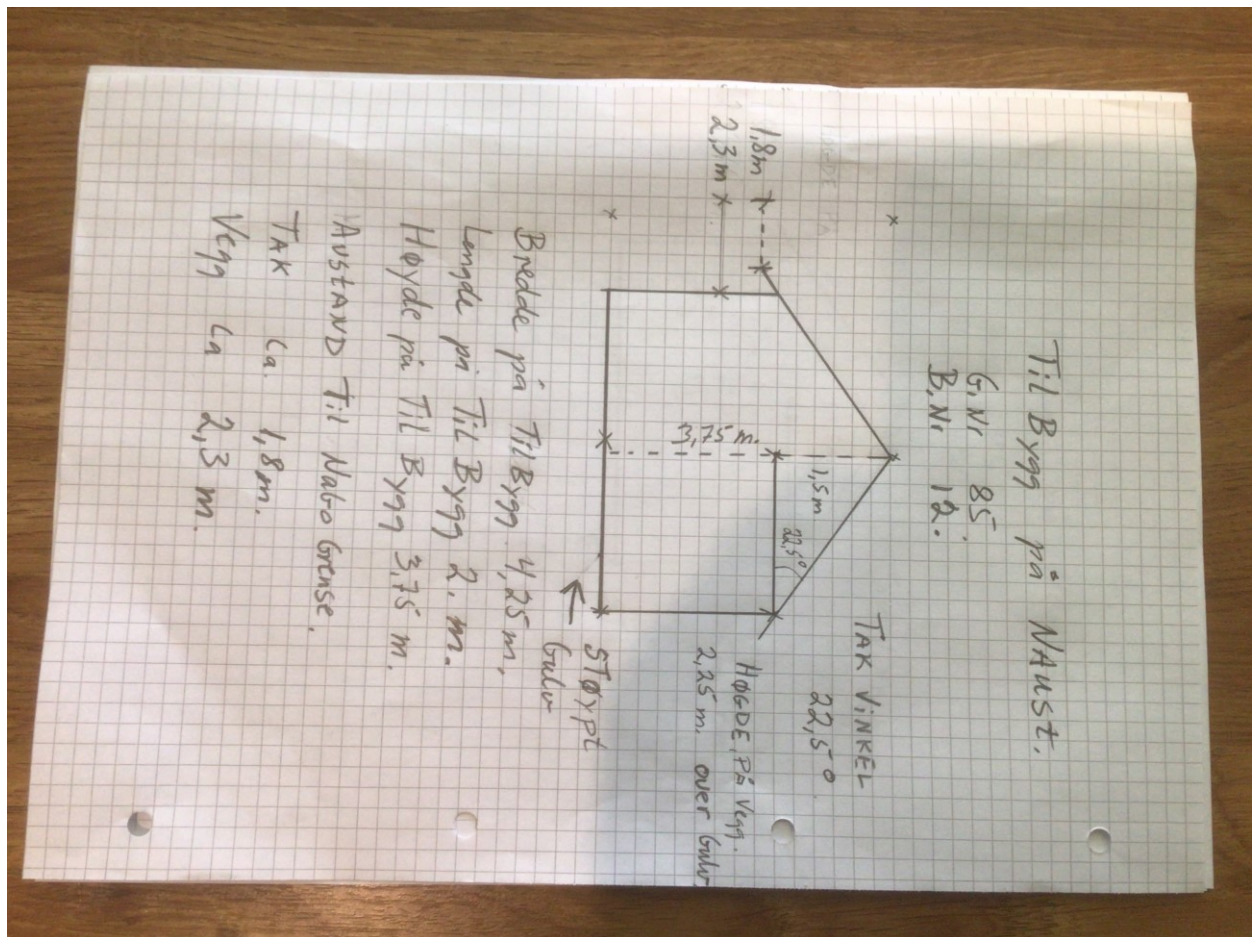 Til Bygg på NAust.
G.Nr 85.
B.Nr 12.
TAK ViNKEL
22,5°
1,5 m
22,5°
3,75 m.
1,8m
2,3 m
HØGDE PÅ Vegg.
2,25 m. over Gulv
STØypt
Gulv
Bredde på TilBygg 4,25 m,
Lengde på TilBygg 2. m.
Høyde på TilBygg 3,75 m.
AvstAND Til Nabo Grense.
TAK Ca. 1,8m.
Vegg Ca 2,3 m.